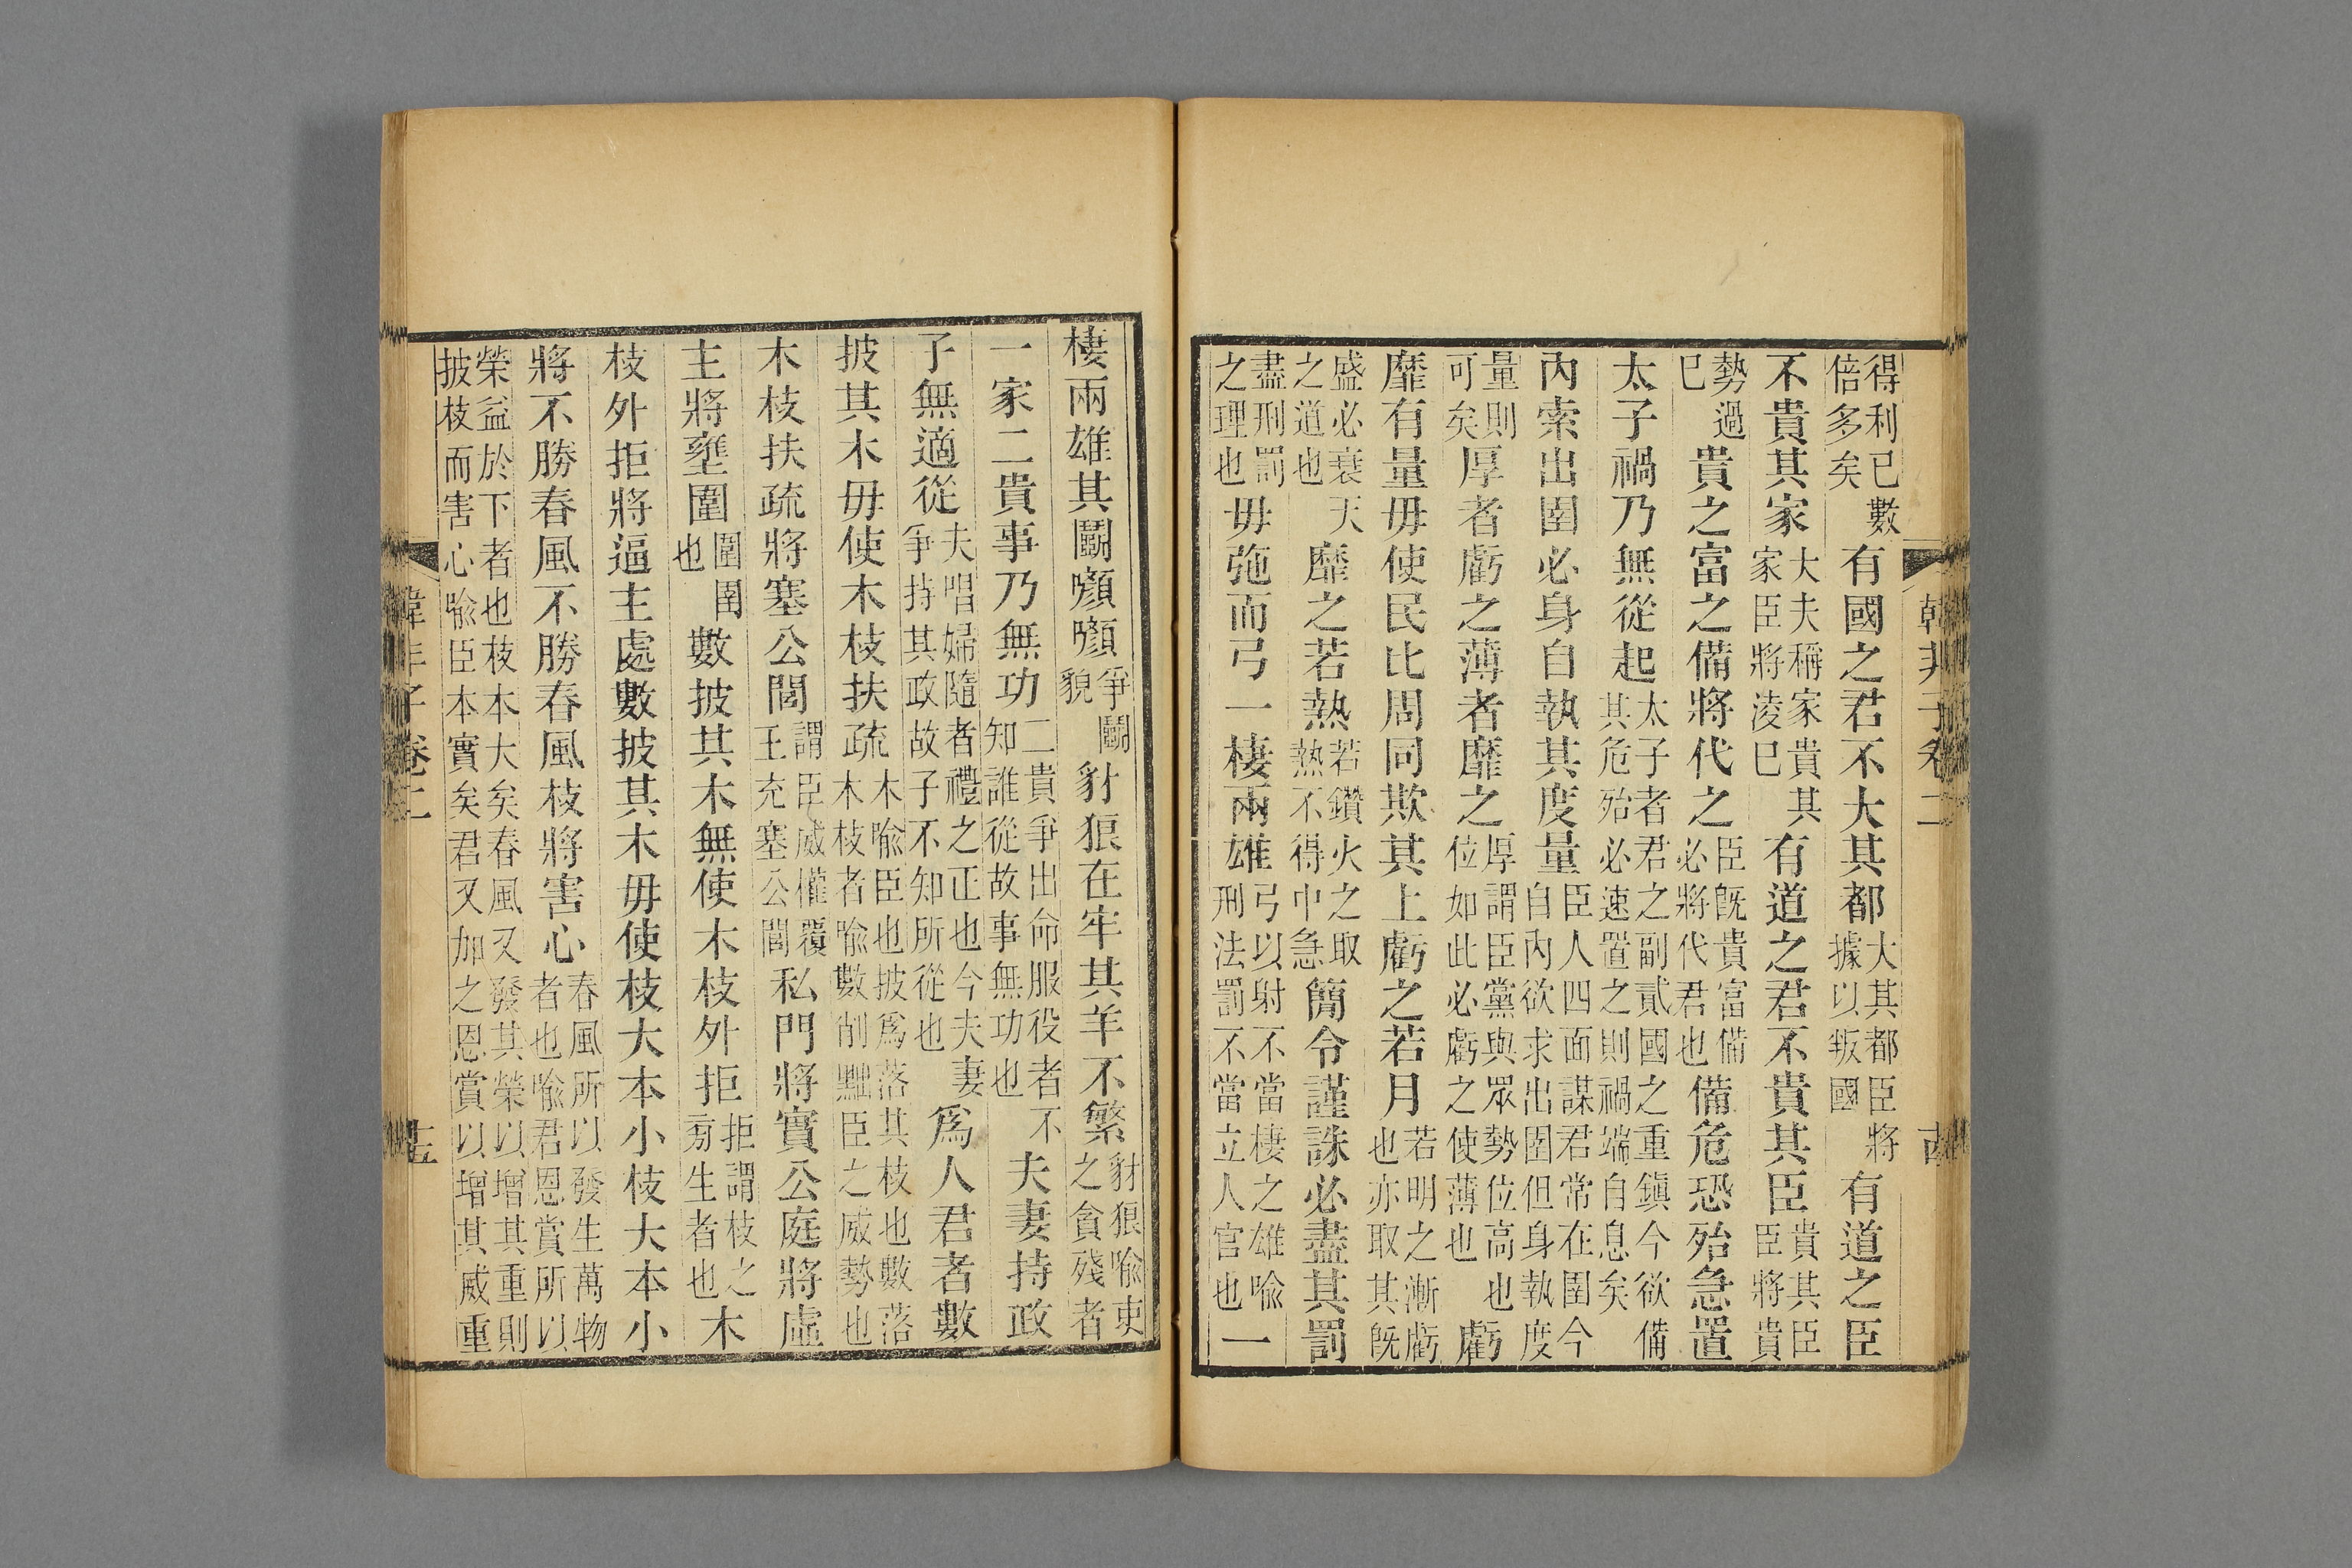 韓非子卷二　十四
得利已數倍多矣有國之君不大其都大其都臣將據以叛國有道之臣
不貴其家大夫稱家貴其家臣將淩已有道之君不貴其臣貴其臣臣將貴
勢過已貴之富之備將代之臣既貴富備必將代君也備危恐殆急置
太子禍乃無從起太子者君之副貳國之重鎮今欲備其危殆必速置之則禍端自息矣
內索出圉必身自執其度量臣人四面謀君常在圉今自內欲求出圉但身執度
量則可矣厚者虧之薄者靡之厚謂臣黨與眾勢位高也位如此必虧之使薄也虧
靡有量毋使民比周同欺其上虧之若月若明之漸虧也亦取其既
盛必衰天之道也靡之若熱若鑽火之取熱不得中急簡令謹誅必盡其罰
盡刑罰之理也毋弛而弓一棲兩雄弓以射不當棲之雄喻刑法罰不當立人官也一
棲兩雄其鬭㘖㘖爭鬭貌豺狼在牢其羊不繁豺狼喻吏之貪殘者
一家二貴事乃無功二貴爭出命服役者不知誰從故事無功也夫妻持政
子無適從夫唱婦隨者禮之正也今夫妻爭持其政故子不知所從也爲人君者數
披其木毋使木枝扶疏木喻臣也披爲落其枝也數落木枝者喻數削黜臣之威勢也
木枝扶疏將塞公閭謂臣威權覆王充塞公閭私門將實公庭將虛
主將壅圍圍圉也數披其木無使木枝外拒拒謂枝之旁生者也木
枝外拒將逼主處數披其木毋使枝大本小枝大本小
將不勝春風不勝春風枝將害心春風所以發生萬物者也喻君恩賞所以
榮益於下者也枝本大矣春風又發其榮以增其重則披枝而害心喻臣本實矣君又加之恩賞以增其威重
韓非子卷二　十五